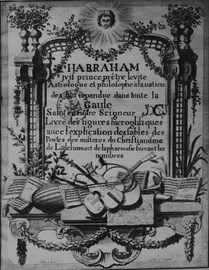 HABRAHAM
juif prince prêtre levite
Astrologue et philosophe a la nation
des juifs repandue dans toute la
Gaule
Salut en notre Seigneur J.C.
Livre des figures hieroglifiques
avec l'explication des fables des
Poetes des misteres du Christianisme
de L'alchimie et de la pharmacie suivant les
nombres